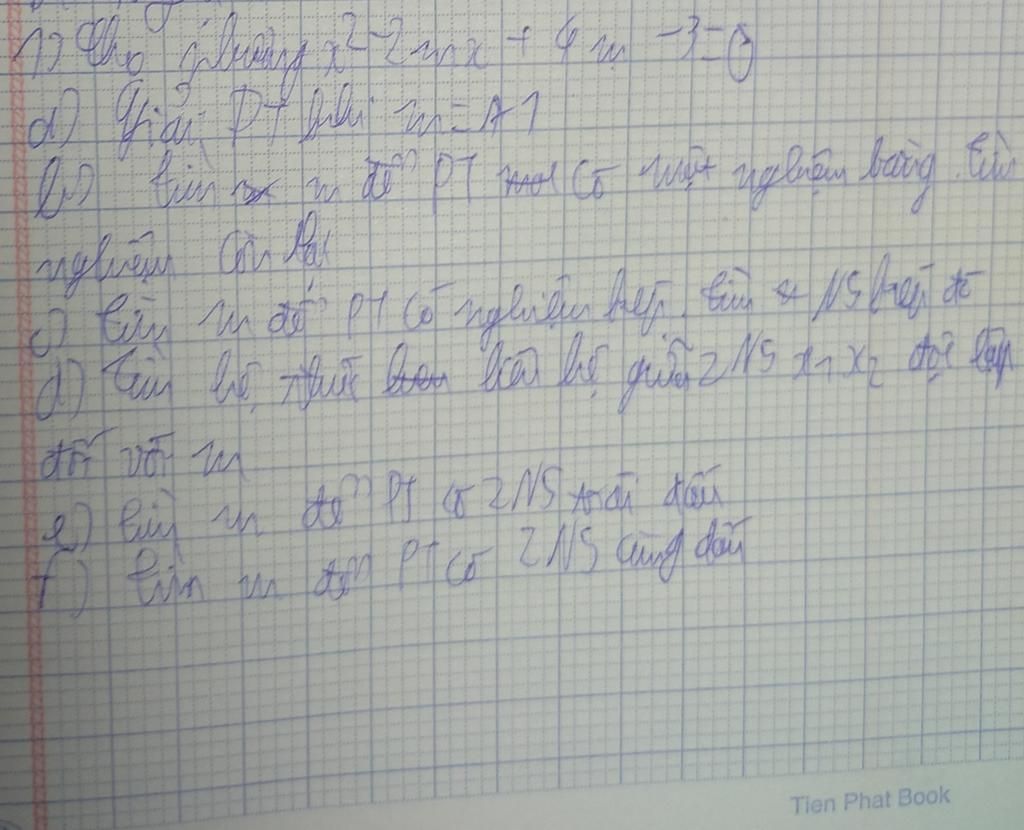 1) Cho phương x² - 2mx + 4m - 3 = 0
a) Giải PT khi m = 1
b) tìm m để PT có một nghiệm bằng. tìm
nghiệm còn lại
c) tìm m để PT có nghiệm kép. tìm NS kép đó
d) tìm hệ thức liên hệ giữa 2 NS x₁ x₂ độc lập
đối với m
e) tìm m để PT có 2 NS trái dấu
f) tìm m để PT có 2 NS cùng dấu
Tien Phat Book